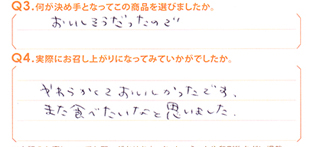 Q3.何が決め手となってこの商品を選びましたか。
おいしそうだったので
Q4.実際にお召し上がりになってみていかがでしたか。
やわらかくておいしかったです。
また食べたいなと思いました。